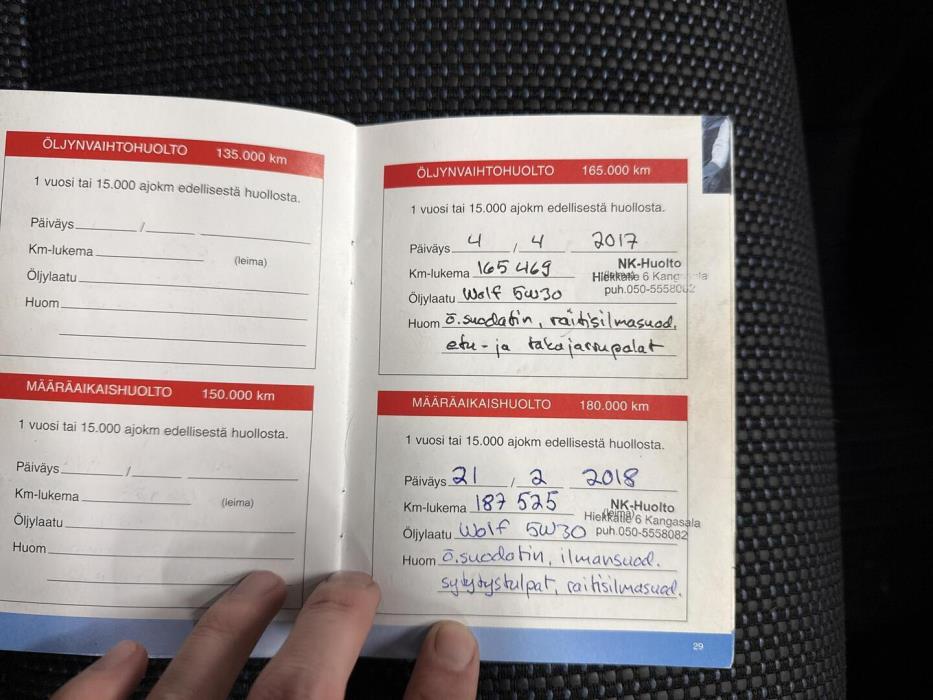 ÖLJYNVAIHTOHUOLTO 135.000 km
1 vuosi tai 15.000 ajokm edellisestä huollosta.
Päiväys / 
Km-lukema
(leima)
Öljylaatu
Huom
MÄÄRÄAIKAISHUOLTO 150.000 km
1 vuosi tai 15.000 ajokm edellisestä huollosta.
Päiväys /
Km-lukema
(leima)
Öljylaatu
Huom
ÖLJYNVAIHTOHUOLTO 165.000 km
1 vuosi tai 15.000 ajokm edellisestä huollosta.
Päiväys 4 / 4 2017
Km-lukema 165 469
NK-Huolto
Hiekkatie 6 Kangasala
puh.050-5558082
Öljylaatu Wolf 5W30
Huom ö.suodatin, raitisilmasuod.
etu- ja takajarrupalat
MÄÄRÄAIKAISHUOLTO 180.000 km
1 vuosi tai 15.000 ajokm edellisestä huollosta.
Päiväys 21 / 2 2018
Km-lukema 187 525
(leima)
NK-Huolto
Hiekkatie 6 Kangasala
puh.050-5558082
Öljylaatu Wolf 5W30
Huom ö.suodatin, ilmansuod.
sytytystulpat, raitisilmasuod.
29